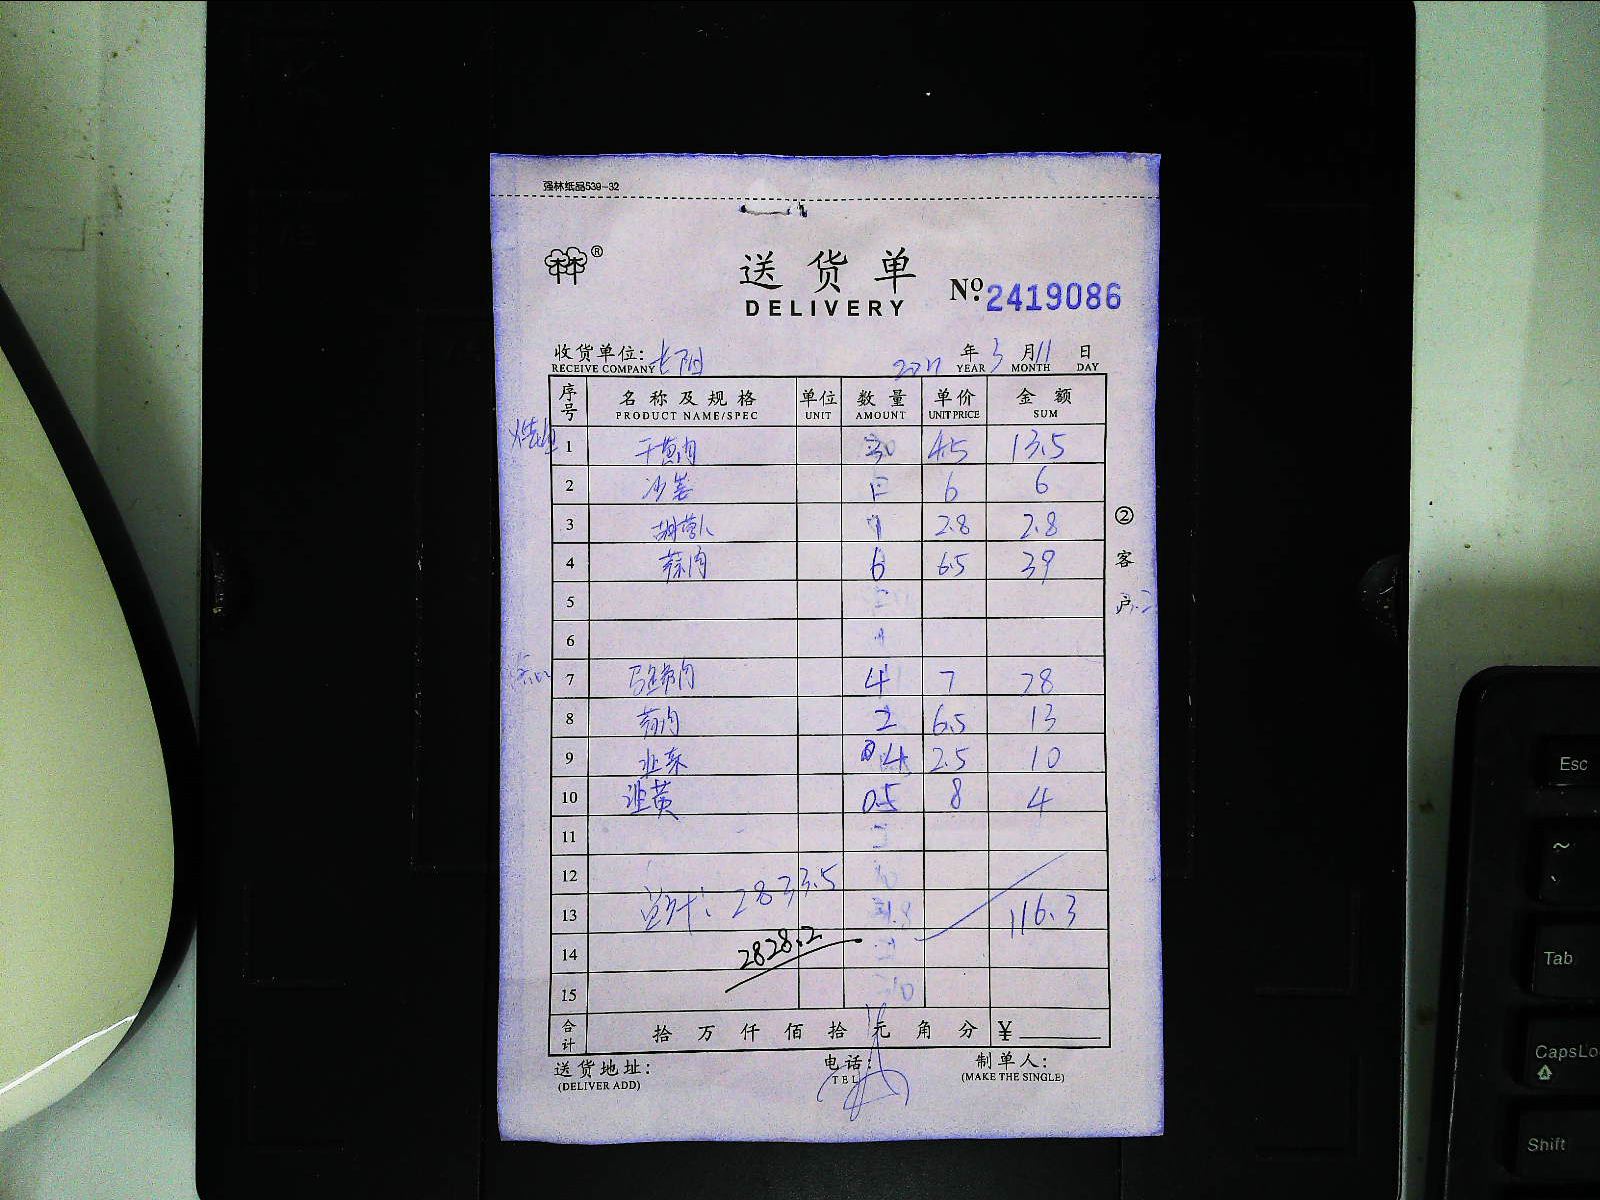 强林纸品539-32
®
送货单
DELIVERY
No. 2419086
收货单位: 长阳 年 3 月 11 日
RECEIVE COMPANY YEAR MONTH DAY
序号 名称及规格 单位 数量 单价 金额
PRODUCT NAME/SPEC UNIT AMOUNT UNIT PRICE SUM
1 干葱肉 4.5 13.5
2 沙姜 6 6
3 1 2.8 2.8
4 蒜肉 6 6.5 39
5
6
7 4 7 28
8 2 6.5 13
9 韭菜 4 2.5 10
10 韭黄 0.5 8 4
11
12
总计: 2833.5
13 116.3
14 2828.2
15
合计 拾 万 仟 佰 拾 元 角 分 ¥
② 客户
送货地址: 电话: 制单人:
(DELIVER ADD) TEL (MAKE THE SINGLE)
Esc
~
Tab
CapsLo
Shift